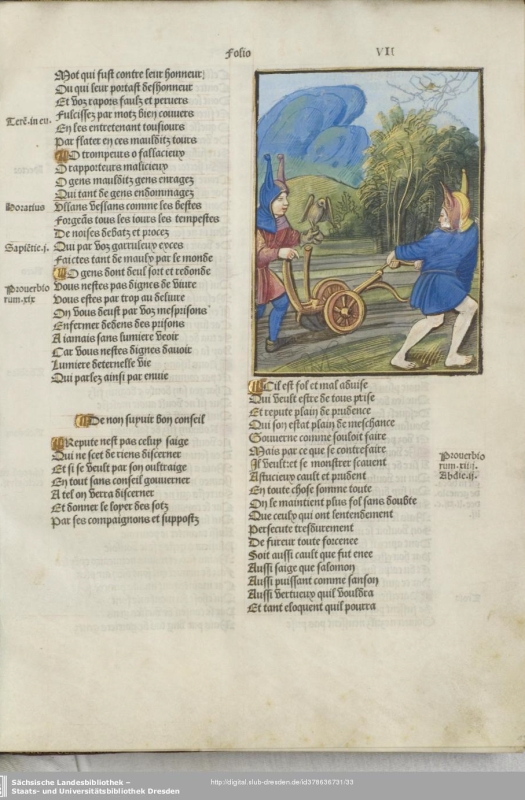 Folio
VII
Mot qui fust contre leur honneur
Ou qui leur portast deshonneur
Et voz rapors faulx et peruers
Fulcissez par motz bien couuers
Terē.in eu.
En les entretenant tousiours
Par flater en ces mauldictz tours
O trompeurs o fallacieux
O rapporteurs malicieux
O gens mauldictz gens enragez
Qui tant de gens endommagez
Horatius
Vllans Vessans comme les bestes
Forgeās tous les iours les tempestes
De noises debatz et procez
Sapiētie.j.
Qui par voz garruleux exces
Faictes tant de maulx par le monde
O gens dont deul sort et redonde
Prouerbio
rum.xix
Vous nestes pas dignes de viure
Vous estes par trop au deliure
On vous deust par voz mesprisons
Enfermer dedens des prisons
A iamais sans lumiere veoir
Car vous nestes dignes dauoir
Lumiere deternelle vie
Qui parlez ainsi par enuie
De non suyuir bon conseil
Repute nest pas celuy saige
Qui ne scet de riens discerner
Et si se veult par son oultraige
En tout sans conseil gouuerner
A tel on verra discerner
Et donner le loyer des sotz
Par ses compaignons et suppostz
Cil est fol et mal aduise
Qui veult estre de tous prise
Et repute plain de prudence
Qui son estat plain de meschance
Gouuerne comme souloit faire
Mais par ce que se contrefaire
Prouerbio
rum.xiij.
Abdie.ij.
Il veult:et se monstrer scauent
Astucieux cault et prudent
En toute chose somme toute
On le maintient plus fol sans doubte
Que ceulx qui ont lentendement
Persecute tresdurement
De fureur toute forcenee
Soit aussi cault que fut enee
Aussi saige que salomon
Aussi puissant comme sanson
Aussi vertueux quil vouldra
Et tant eloquent quil pourra
Sächsische Landesbibliothek –
Staats- und Universitätsbibliothek Dresden
http://digital.slub-dresden.de/id378636731/33